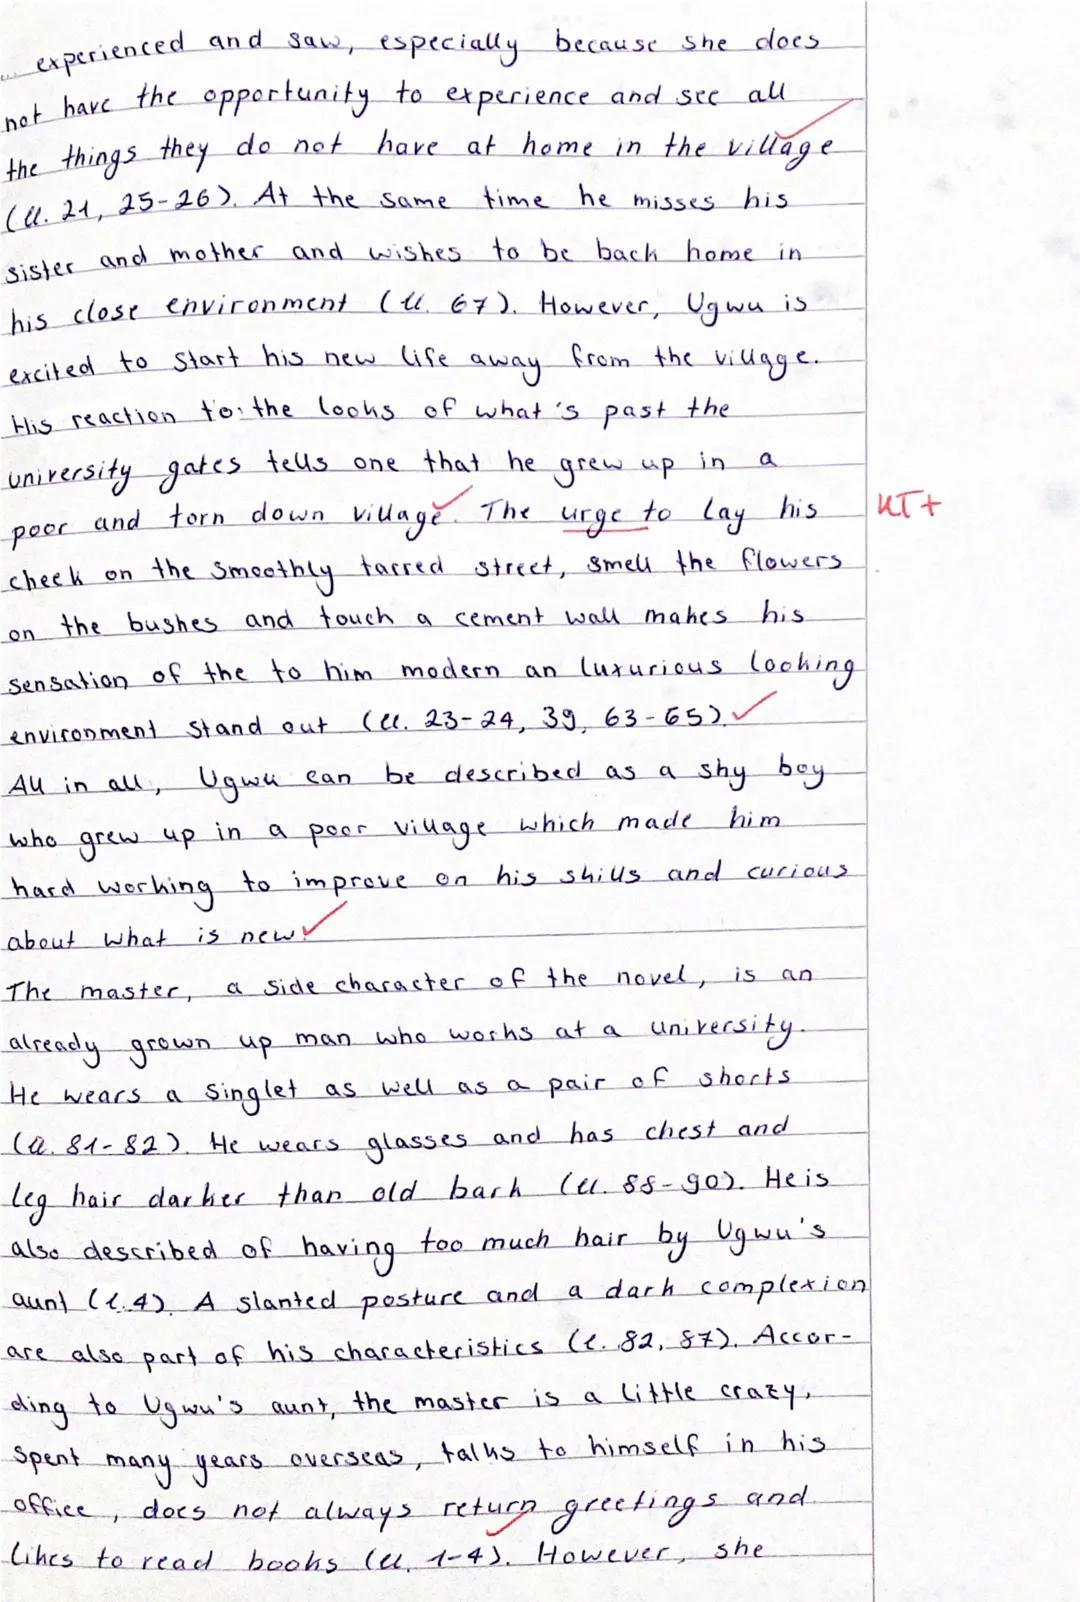 experienced and saw, especially because she does
not have the opportunity to experience and see all
the things they do not have at home in the village
(ll. 21, 25-26). At the same time he misses his
sister and mother and wishes to be back home in
his close environment (ll. 67). However, Ugwu is
excited to start his new life away from the village.
His reaction to the looks of what's past the
university gates tells one that he grew up in a
poor and torn down village. The urge to lay his
KT+
cheek on the smoothly tarred street, smell the flowers
on the bushes and touch a cement wall makes his
sensation of the to him modern an luxurious looking
environment stand out (ll. 23-24, 39, 63-65).
All in all, Ugwu can be described as a shy boy
who grew up in a poor village which made him
hard working to improve on his skills and curious
about what is new.
The master, a side character of the novel, is an
already grown up man who works at a university.
He wears a singlet as well as a pair of shorts
(ll. 81-82). He wears glasses and has chest and
leg hair darker than old bark (ll. 88-90). He is
also described of having too much hair by Ugwu's
aunt (l.4). A slanted posture and a dark complexion
are also part of his characteristics (l. 82, 87). Accor-
ding to Ugwu's aunt, the master is a little crazy,
spent many years overseas, talks to himself in his
office, does not always return greetings and
likes to read books (ll. 1-4). However, she